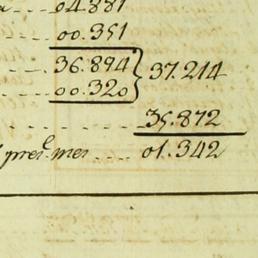 04.881
00.351
36.894
00.320 } 37.214
35.872
pres.e mes .... 01.342